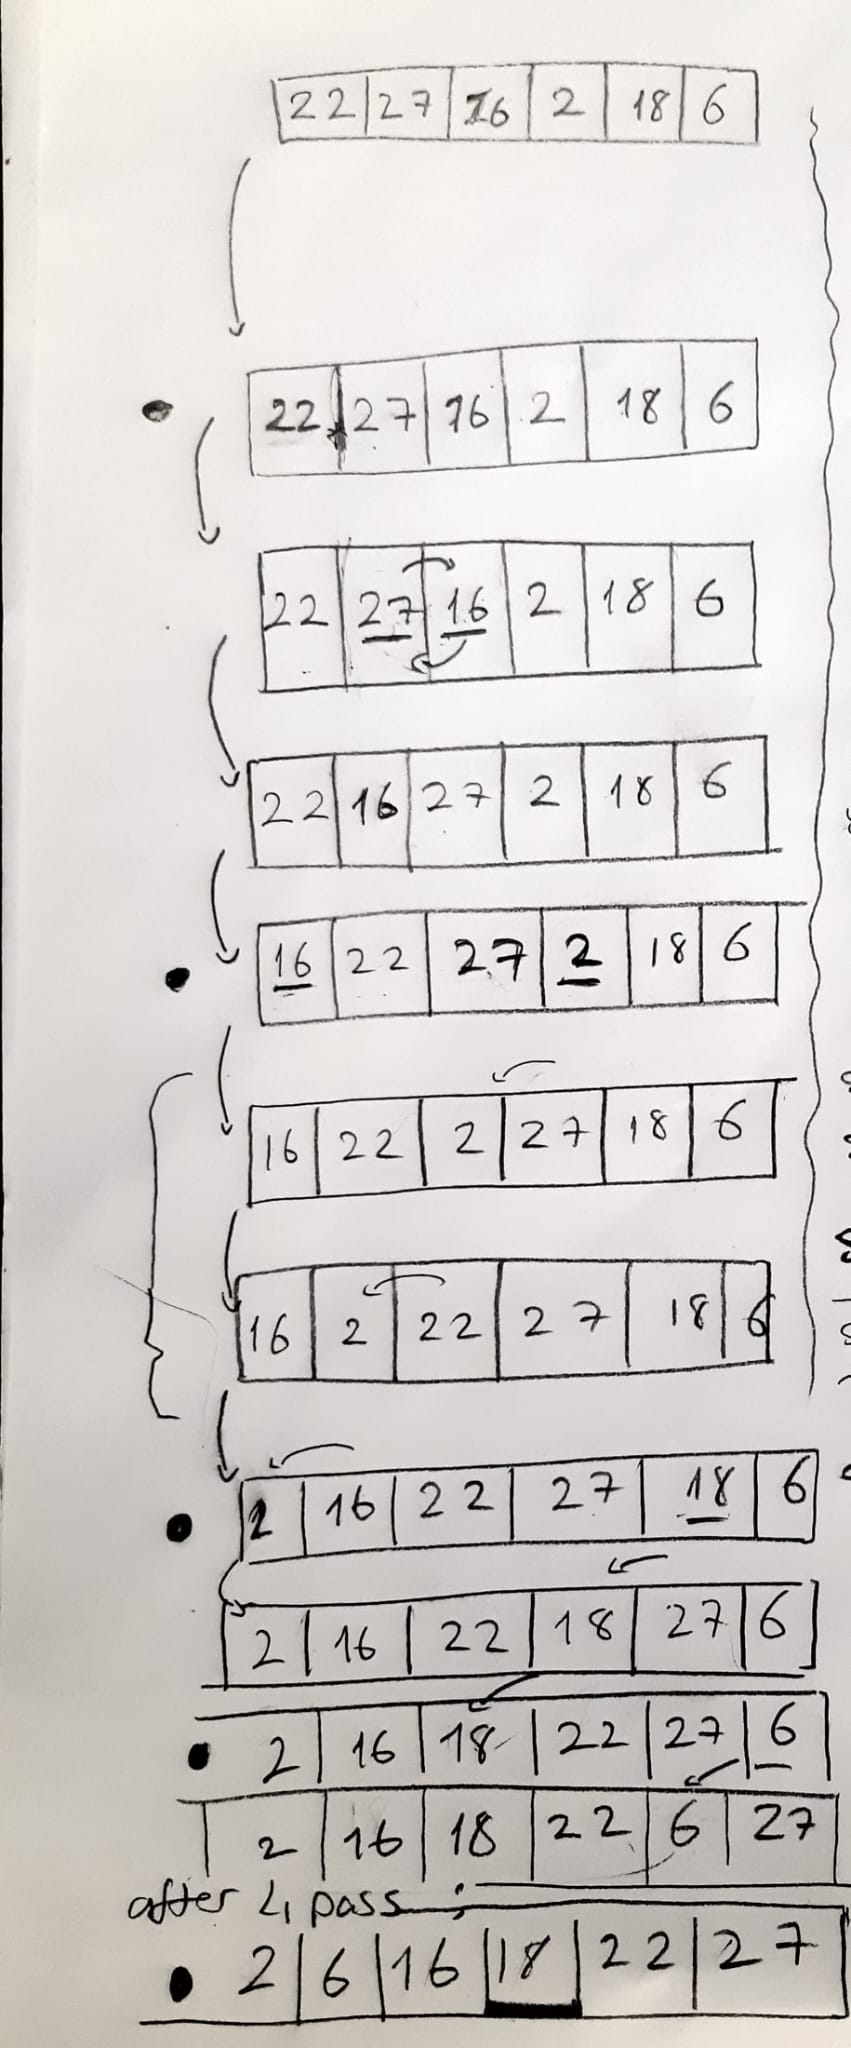 22 27 16 2 18 6
22 27 16 2 18 6
22 27 16 2 18 6
22 16 27 2 18 6
16 22 27 2 18 6
16 22 2 27 18 6
16 2 22 27 18 6
2 16 22 27 18 6
2 16 22 18 27 6
2 16 18 22 27 6
2 16 18 22 6 27
after 4 pass :
2 6 16 18 22 27